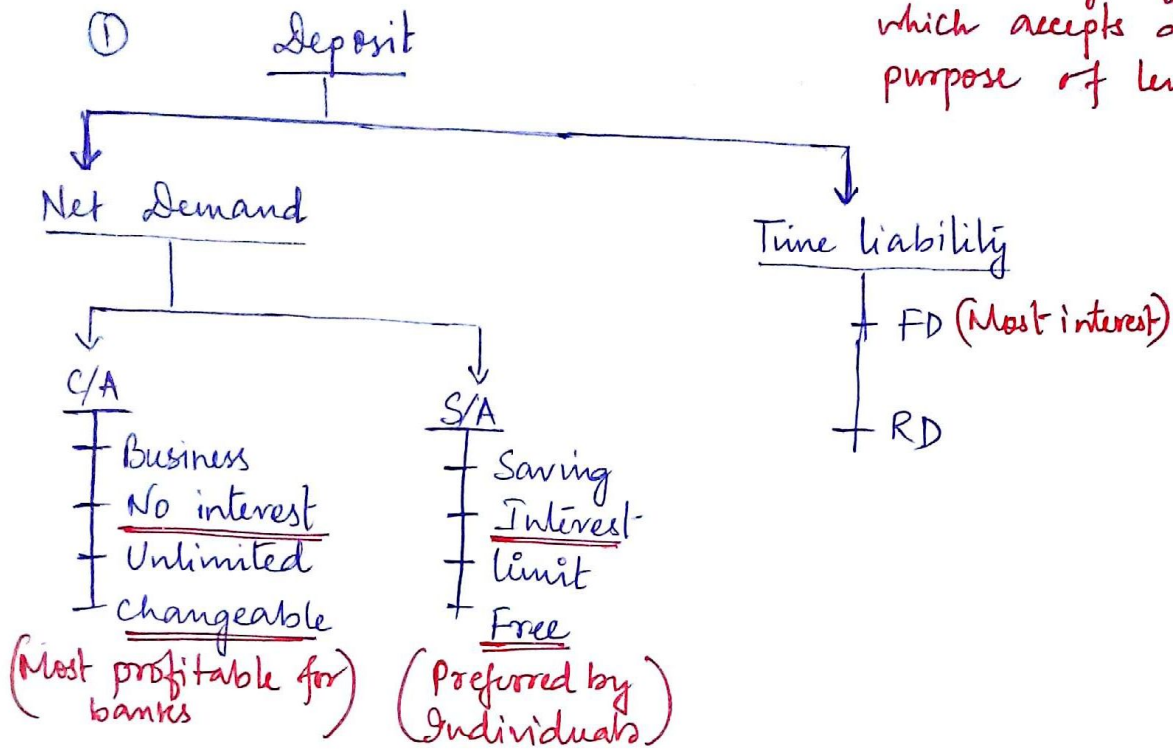 which accepts
purpose of
① Deposit
Net Demand
Time liability
FD (Most interest)
RD
C/A
Business
No interest
Unlimited
Changeable
(Most profitable for
banks)
S/A
Saving
Interest
Limit
Free
(Preferred by
Individuals)